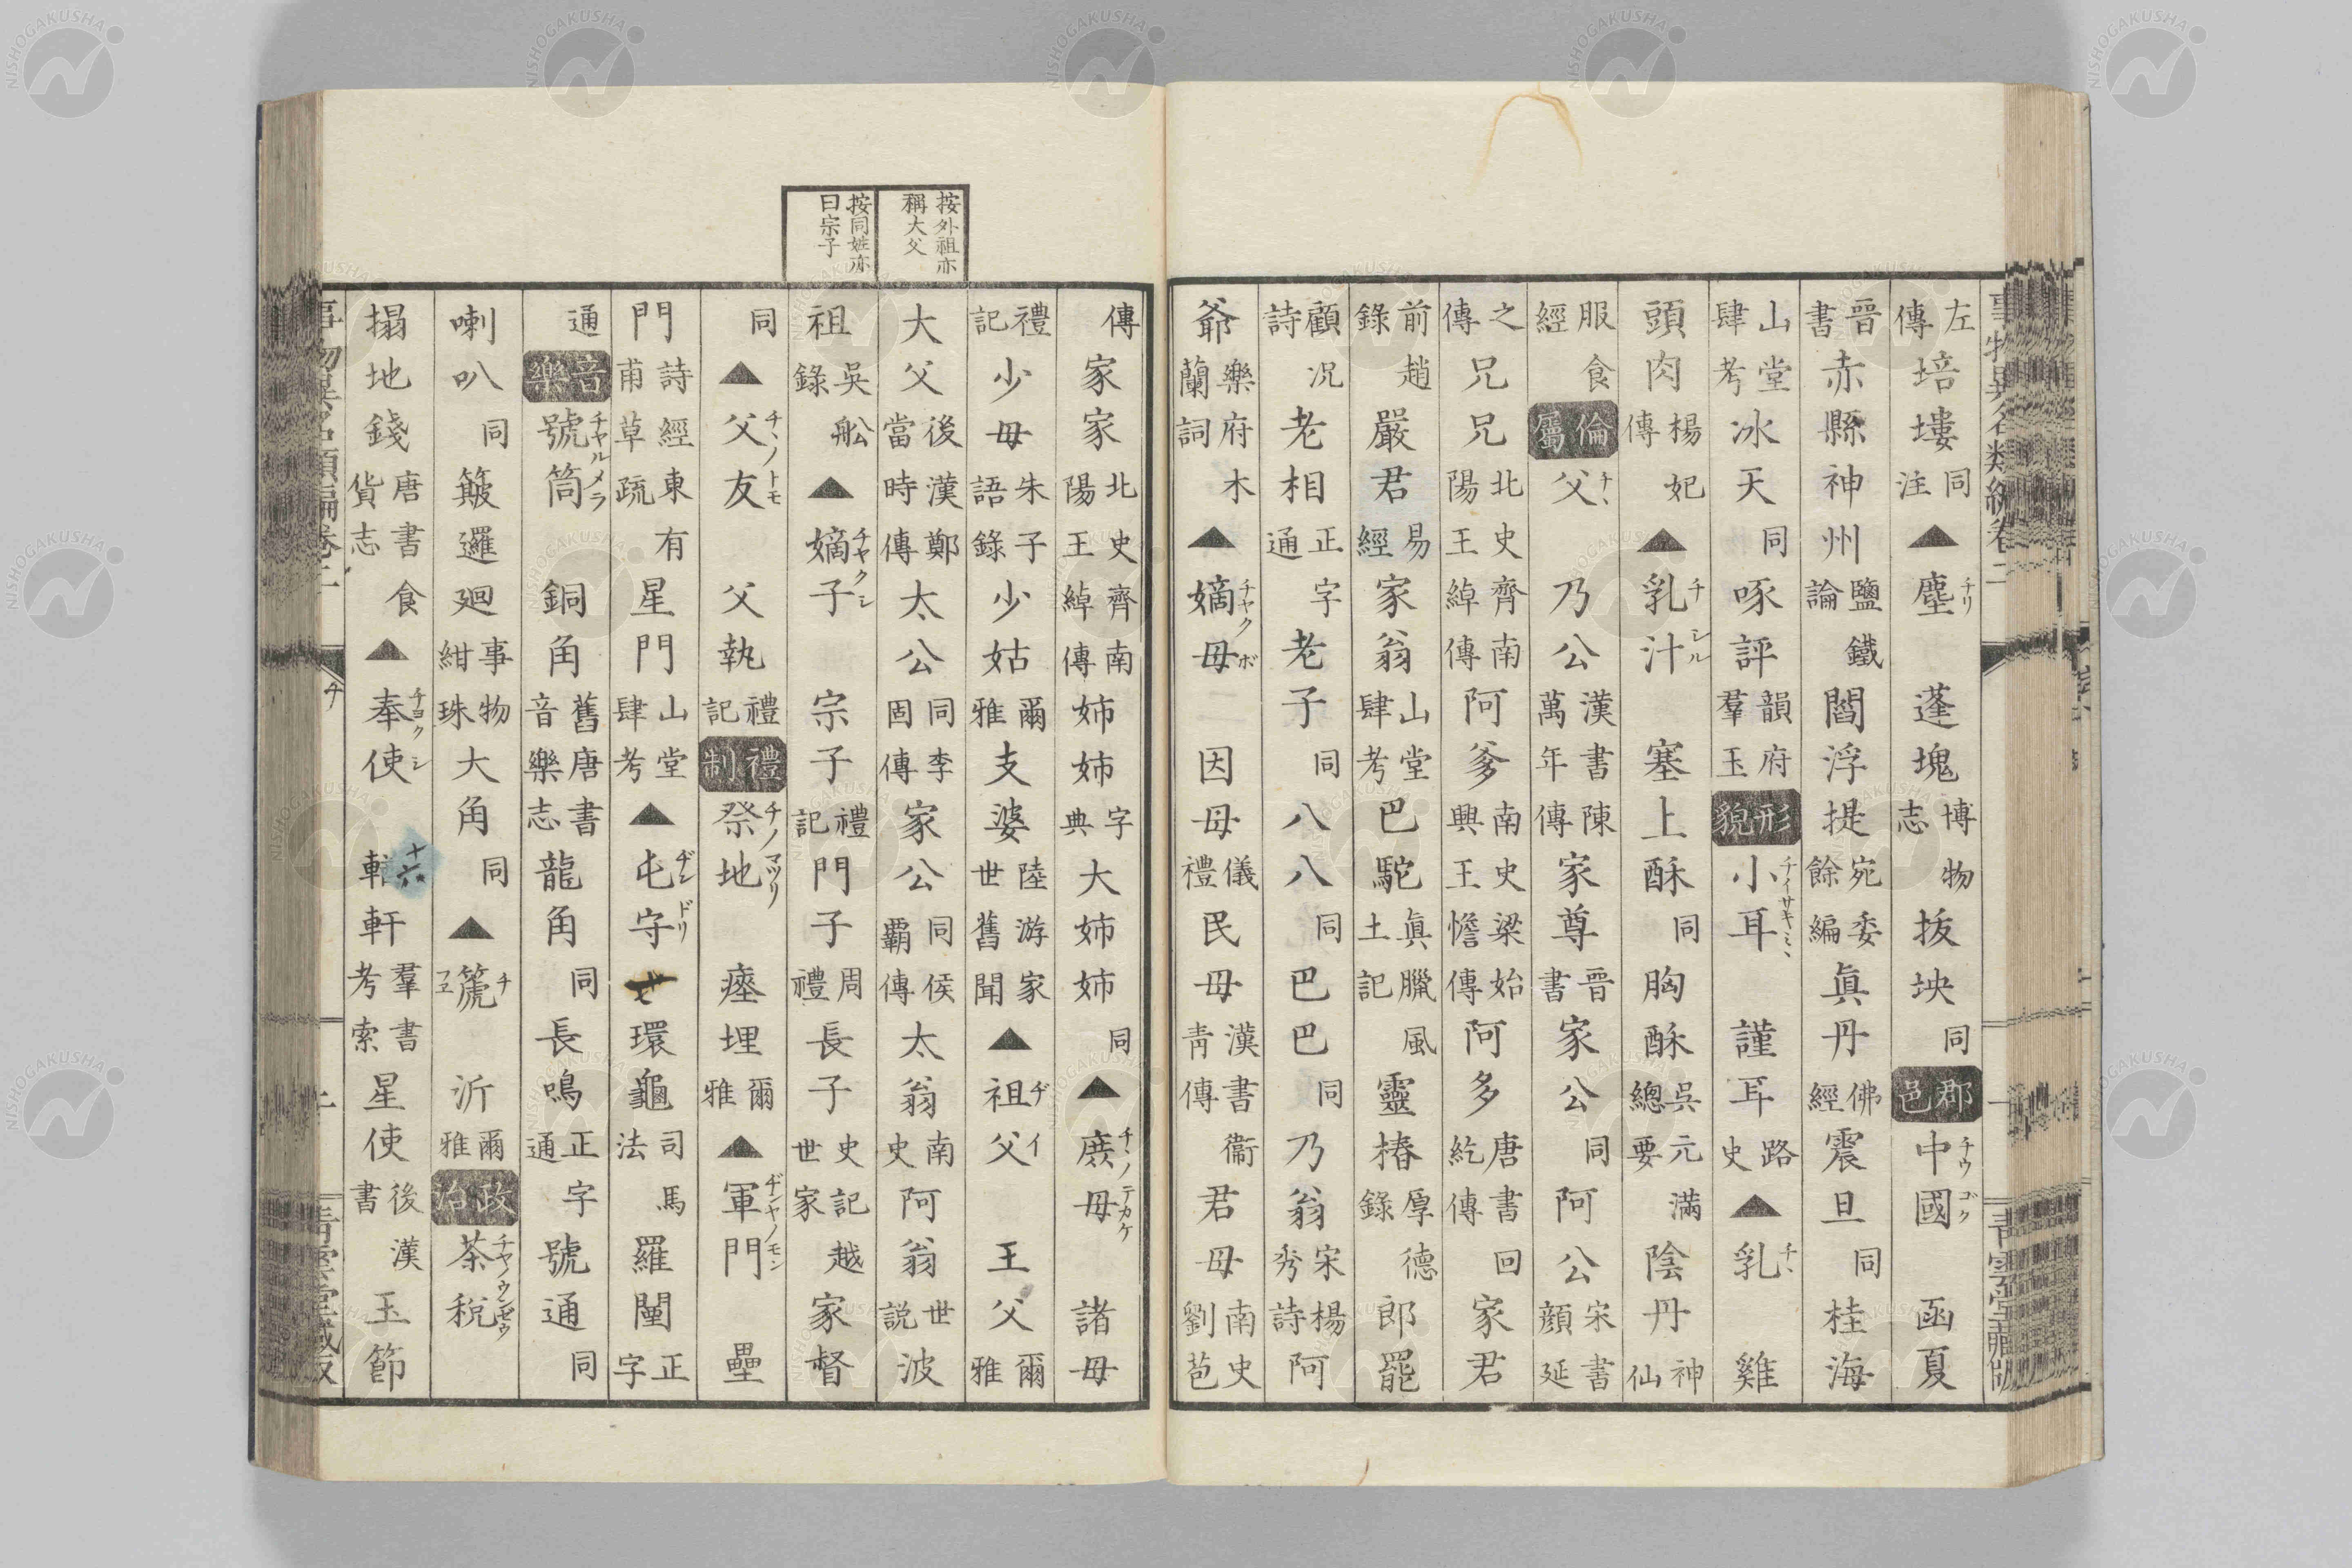 事物異名類編卷二
左傳培塿同注▲塵チリ蓬塊博物志抜坱同郡邑中國チウゴク函夏
晉書赤縣神州鹽鐵論閻浮提宛委餘編眞丹佛經震旦同桂海
山堂肆考冰天同啄評韻府羣玉形貌小耳チイサキミヽ謹耳路史▲乳チヽ雞
頭肉楊妃傳▲乳汁チシル塞上酥同胸酥吳元満總要陰丹神仙
服食經倫屬父チヽ乃公漢書陳萬年傳家尊晉書家公同阿公宋書顔延
之傳兄兄北史齊南陽王綽傳阿爹南史梁始興王憺傳阿多唐書回紇傳家君
前趙錄嚴君易經家翁山堂肆考巴駝眞臘風土記靈椿厚德錄郎罷
顧况詩老相正字通老子同八八同巴巴同乃翁宋楊秀詩阿
爺樂府木蘭詞▲嫡母チヤクボ因母儀禮民母漢書衞青傳君母南史劉苞
按外祖亦稱大父
按同姓亦曰宗子
傳家家北史齊南陽王綽傳姉姉字典大姉姉同▲庻母チヽノテカケ諸母
禮記少母朱子語錄少姑爾雅支婆陸游家世舊聞▲祖父ヂイ王父爾雅
大父後漢鄭當時傳太公同李固傳家公同侯覇傳太翁南史阿翁世説波
祖吳舩錄▲嫡子チヤクシ宗子禮記門子周禮長子史記越世家家督
同▲父友チヽノトモ父執禮記禮制祭地チノマツリ瘞埋爾雅▲軍門ヂンヤノモン壘
門詩經東有甫草疏星門山堂肆考▲屯守ヂンドリ環龜司馬法羅闉正字
通音樂號筒チヤルメラ銅角舊唐書音樂志龍角同長鳴正字通號通同
喇叭同簸邏廻事物紺珠大角同▲篪チ沂爾雅政治茶税チヤノウンゼウ
搨地錢唐書食貨志▲奉使チヨクシ軒羣書考索星使後漢書玉節
十六
チ